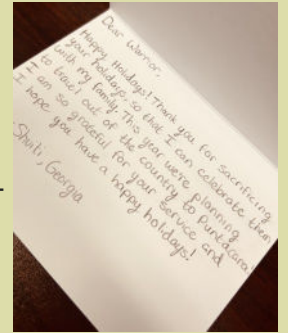 Dear Warrior,
Happy Holidays! Thank you for sacrificing
your holidays so that I can celebrate them
with my family. This year we're planning
to travel out of the country to Puntacana!
I am so grateful for your service and
I hope you have a happy holidays!
-Shuti, Georgia